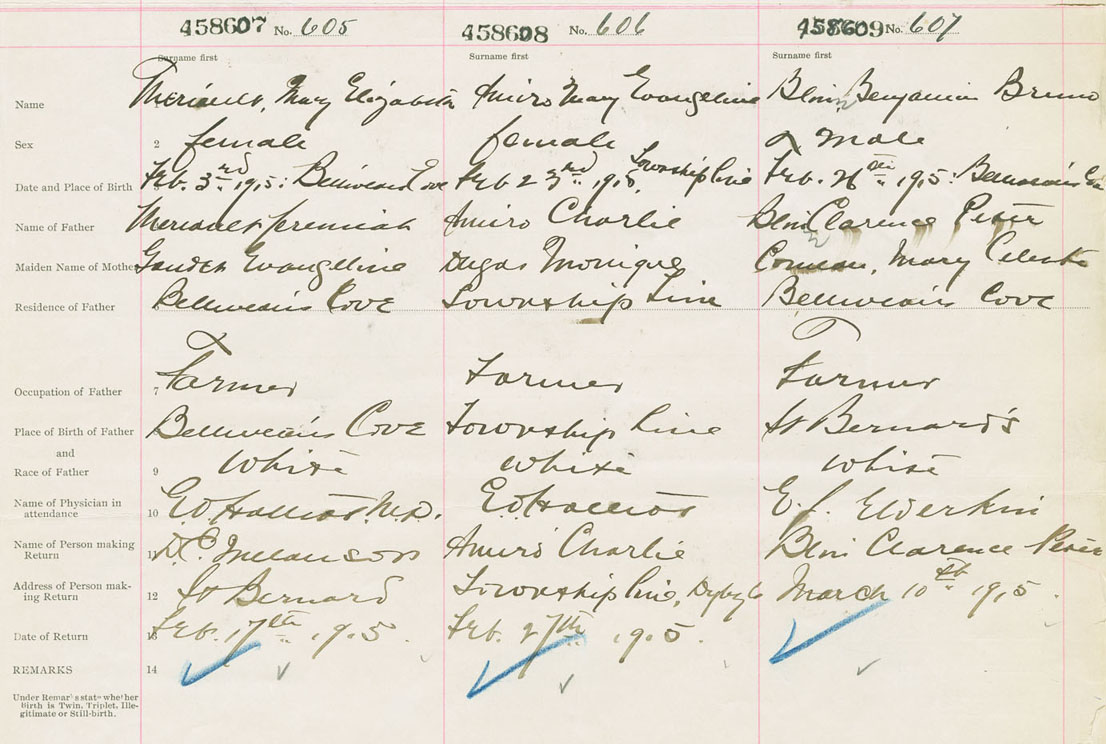 458607 No. 605 458608 No. 606 458609 No. 607
Surname first Surname first Surname first
Name Theriault, Mary Elizabeth Amiro Mary Evangeline Benjamin Bruno
Sex 2 female female male
Date and Place of Birth Feb. 3rd 1915: Belliveau's Cove Feb 23rd 1915, Township line Feb. 26th 1915: Belliveau's Cove
Name of Father Theriault Jeremiah Amiro Charlie Clarence Peter
Maiden Name of Mother Evangeline Dugas Monique Comeau, Mary Celeste
Residence of Father Belliveau's Cove Township Line Belliveau's Cove
Occupation of Father 7 Farmer Farmer Farmer
Place of Birth of Father Belliveau's Cove Township line St Bernard's
and
Race of Father 9 White White White
Name of Physician in
attendance 10 M.D. E. J. Elderkin
Name of Person making
Return 11 Melanson Amiro Charlie Clarence Peter
Address of Person mak-
ing Return 12 St Bernard Township line, Digby Co March 10th 1915.
Date of Return 13 Feb. 17th 1915. Feb. 27th 1915.
REMARKS 14
Under Remarks state whether
Birth is Twin, Triplet, Ille-
gitimate or Still-birth.